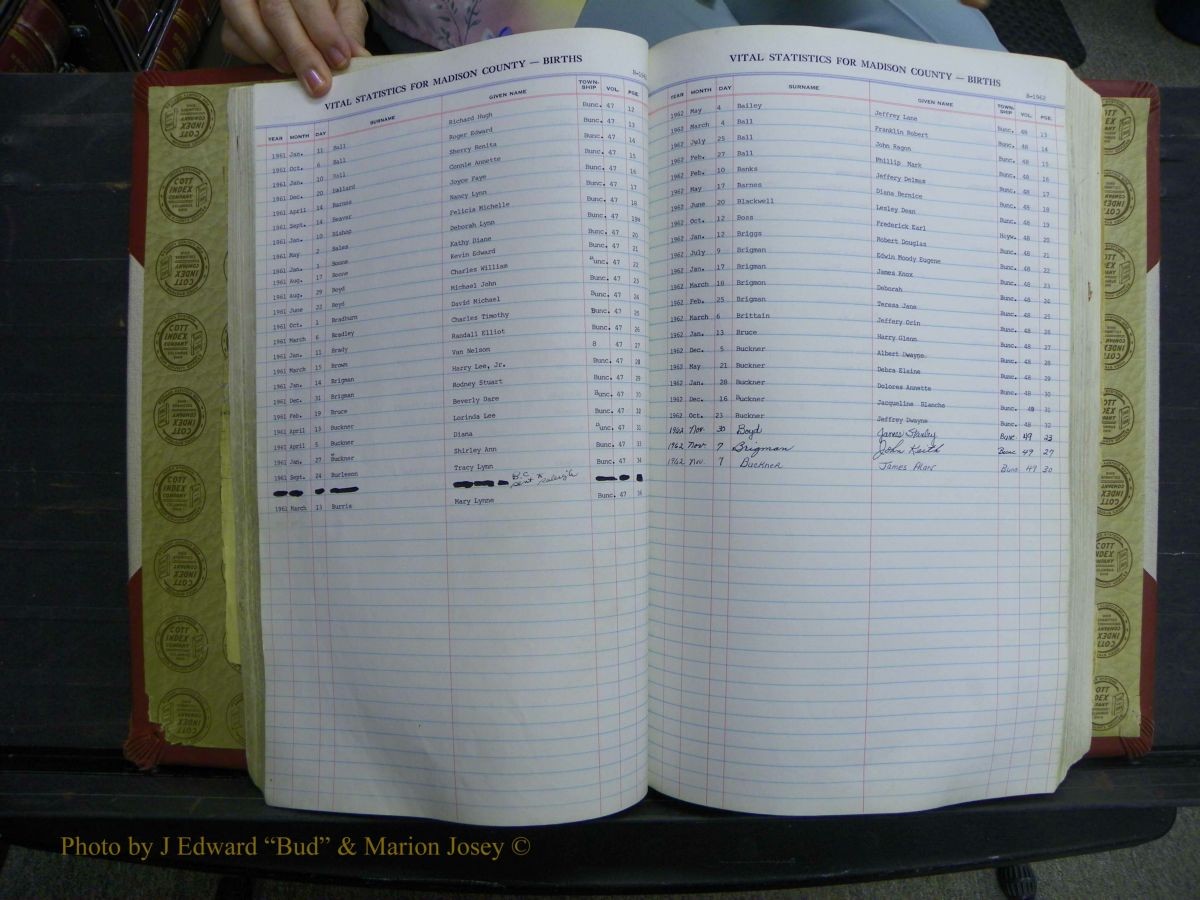 VITAL STATISTICS FOR MADISON COUNTY — BIRTHS
YEAR MONTH DAY SURNAME GIVEN NAME TOWN-SHIP VOL. PGE.
1961 Jan. 11 Ball Richard Hugh Bunc. 47 12
1961 Oct. 6 Ball Roger Edward Bunc. 47 13
1961 Jan. 10 Ball Sherry Bonita Bunc. 47 14
1961 Dec. 20 Ballard Connie Annette Bunc. 47 15
1961 April 14 Barnes Joyce Faye Bunc. 47 16
1961 Sept. 14 Beaver Nancy Lynn Bunc. 47 17
1961 Jan. 10 Bishop Felicia Michelle Bunc. 47 18
1961 May 2 Deborah Lynn Bunc. 47
1961 Jan. 1 Boone Kathy Diane Bunc. 47 20
1961 Aug. 17 Boone Kevin Edward Bunc. 47 21
1961 Aug. 29 Boyd Charles William Bunc. 47 22
1961 June 22 Boyd Michael John Bunc. 47 23
1961 Oct. 1 Bradburn David Michael Bunc. 47 24
1961 March 6 Bradley Charles Timothy Bunc. 47 25
1961 Jan. 11 Brady Randall Elliot Bunc. 47 26
1961 March 15 Brown Van Nelson B 47 27
1961 Jan. 14 Brigman Harry Lee, Jr. Bunc. 47 28
1961 Dec. 31 Brigman Rodney Stuart Bunc. 47
1961 Feb. 19 Bruce Beverly Dare Bunc. 47 30
1961 April 13 Buckner Lorinda Lee Bunc. 47 32
1961 April 5 Buckner Diana Bunc. 47 31
1961 Jan. 27 Buckner Shirley Ann Bunc. 47 33
1961 Sept. 24 Burleson Tracy Lynn Bunc. 47 34
B.C. sent to Raleigh
1961 March 13 Burris Mary Lynne Bunc. 47 36
VITAL STATISTICS FOR MADISON COUNTY — BIRTHS
B-1962
YEAR MONTH DAY SURNAME GIVEN NAME TOWN-SHIP VOL. PGE.
1962 May 4 Bailey Jeffrey Lane Bunc. 48 13
1962 March 4 Ball Franklin Robert Bunc. 48 14
1962 July 25 Ball John Ragon Bunc. 48 15
1962 Feb. 27 Ball Phillip Mark Bunc. 48 16
1962 Feb. 10 Banks Jeffery Delmas Bunc. 48 17
1962 May 17 Barnes Diana Bernice Bunc. 48 18
1962 June 20 Blackwell Lesley Dean Bunc. 48 19
1962 Oct. 12 Boss Frederick Earl Hayw. 48 20
1962 Jan. 12 Briggs Robert Douglas Bunc. 48 21
1962 July 9 Brigman Edwin Moody Eugene Bunc. 48 22
1962 Jan. 17 Brigman James Knox Bunc. 48
1962 March 18 Brigmon Deborah Bunc. 48
1962 Feb. 25 Brigman Teresa Jane Bunc. 48 25
1962 March 6 Brittain Jeffery Orin Bunc. 48 26
1962 Jan. 13 Bruce Harry Glenn Bunc. 48 27
1962 Dec. 5 Buckner Albert Dwayne Bunc. 48 28
1962 May 21 Buckner Debra Elaine Bunc. 48 29
1962 Jan. 28 Buckner Dolores Annette Bunc. 48 30
1962 Dec. 16 Buckner Jacqueline Blanche Bunc. 48 31
1962 Oct. 23 Buckner Jeffrey Dwayne Bunc. 48 32
1962 Nov. 30 Boyd James Stanley Bunc 49 23
1962 Nov 7 Brigman John Keith Bunc 49 27
1962 Nov. 7 Buckner James Alan Bunc 49 30
COTT INDEX COMPANY
Photo by J Edward “Bud” & Marion Josey ©